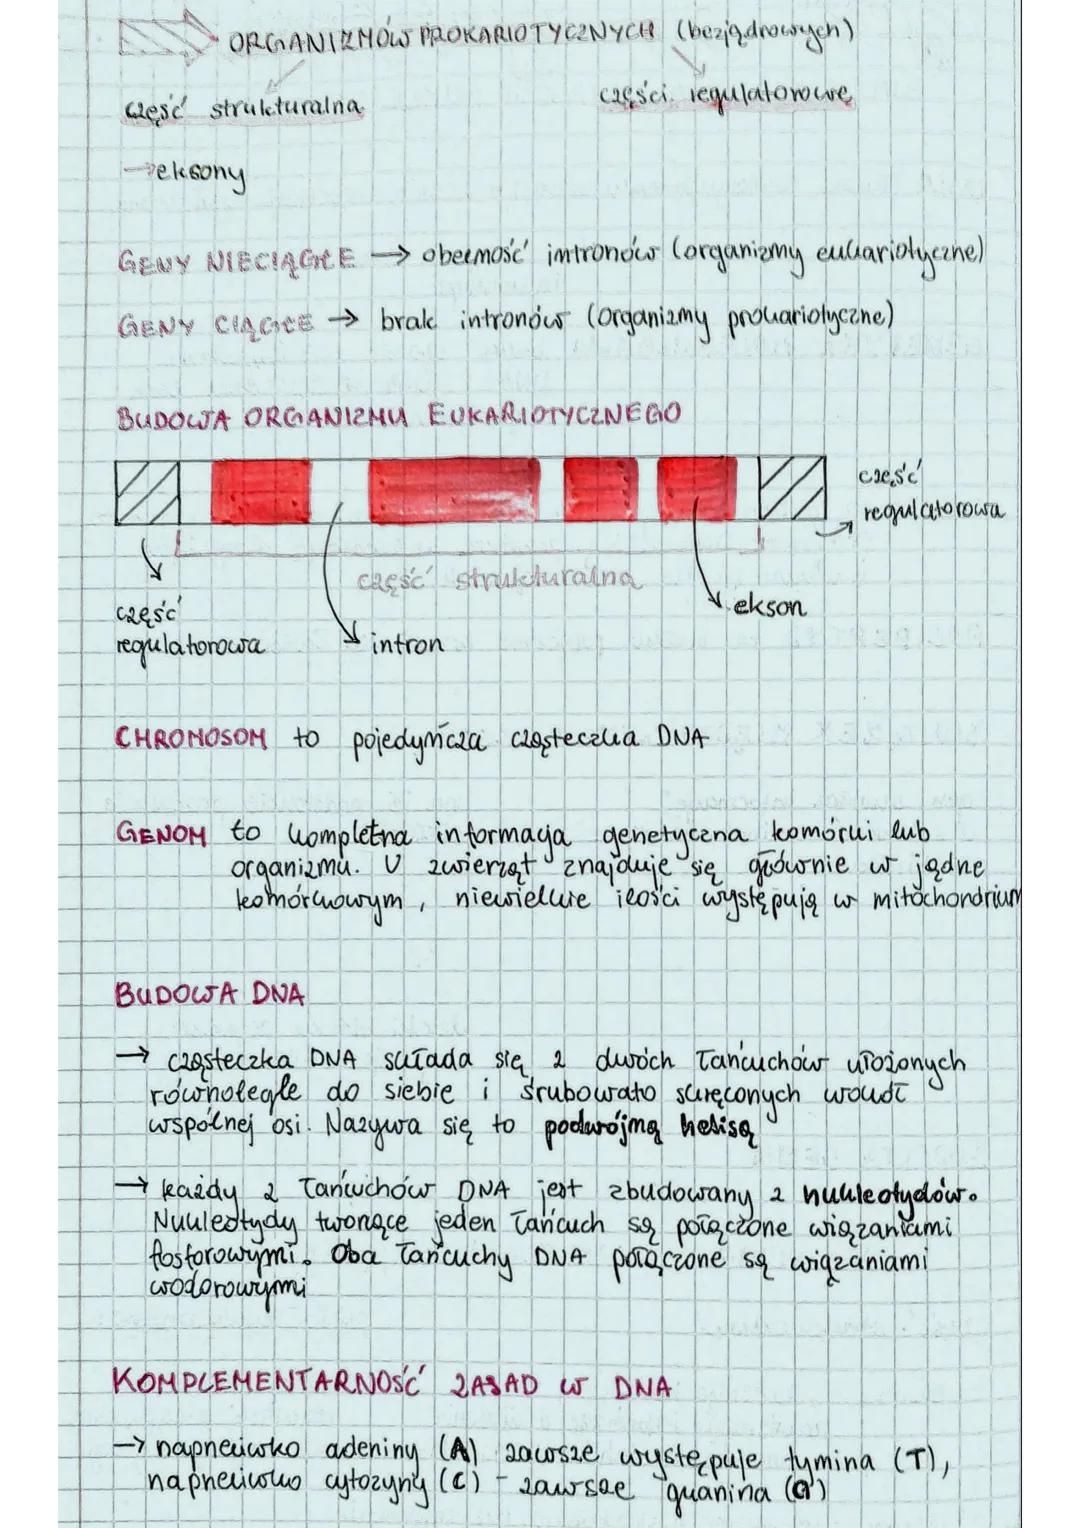 ORGANIZMÓW PROKARIOTYCZNYCH (bezjądrowych)
część strukturalna
części regulatorowe
→ eksony
GENY NIECIĄGŁE → obecność intronów (organizmy eukariotyczne)
GENY CIĄGŁE → brak intronów (organizmy prokariotyczne)
BUDOWA ORGANIZMU EUKARIOTYCZNEGO
część
regulatorowa
część strukturalna
ekson
część
regulatorowa
intron
CHROMOSOM to pojedyńcza cząsteczka DNA
GENOM to kompletna informacja genetyczna komórki lub
organizmu. U zwierząt znajduje się głównie w jądrze
komórkowym, niewielkie ilości występują w mitochondrium
BUDOWA DNA
→ cząsteczka DNA składa się z dwóch łańcuchów ułożonych
równolegle do siebie i śrubowato skręconych wokół
wspólnej osi. Nazywa się to podwójmą helisą
→ każdy z łańcuchów DNA jest zbudowany z nukleotydów.
Nukleotydy tworzące jeden łańcuch są połączone wiązaniami
fosforowymi. Oba łańcuchy DNA połączone są wiązaniami
wodorowymi
KOMPLEMENTARNOŚĆ ZASAD W DNA
→ naprzeciwko adeniny (A) zawsze występuje tymina (T),
naprzeciwko cytozyny (C) - zawsze guanina (G)